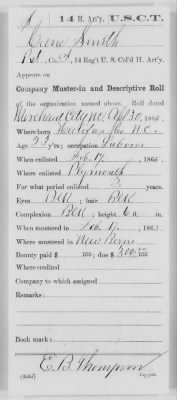 S 14 H. Art'y. U.S.C.T.
Smith
Pvt, Co. , 14 Reg't U. S. Col'd H. Art'y.
Appears on
Company Muster-in and Descriptive Roll
of the organization named above. Roll dated
Morehead City NC 30, 186
Where born Halifax N.C.
Age 23 y'rs; occupation Laborer
When enlisted Feb. 17, 186
Where enlisted Plymouth
For what period enlisted 3 years.
Eyes Blk ; hair Blk
Complexion Blk ; height 6 ft. in.
When mustered in Feb. 17, 186
Where mustered in New Berne
Bounty paid $ 100; due $ 300 100
Where credited
Company to which assigned
Remarks:
Book mark:
E. B. Thompson
(836d) Copyist.